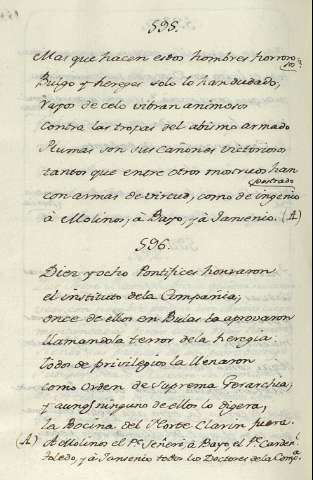 595.
Mas que hacen estos hombres horroro
sos?
Vulgo y hereges solo lo han dudado,
rayos de celo vibran animosos
contra las tropas del abismo armado
Plumas son sus cañones victoriosos
tantos que entre otros mostruos han
postrado
con armas de virtud, como de ingenio
à Molinos, à Bayo, y à Jansenio. (A)
596.
Diez y ocho Pontifices honraron
el instituto dela Compañia,
once de ellos en Bulas la aprovaron
llamandola terror dela heregia
todos de privilegios la llenaron
como Orden de Suprema Gerarchia,
y aunq.e ninguno de ellos lo digera,
la Bocina del Norte Clarin fuera.
(A) A Molinos el P.e Señeri, à Bayo, el P.e Carden.l
Toledo, y à Jansenio todos los Doctores de la Comp.a